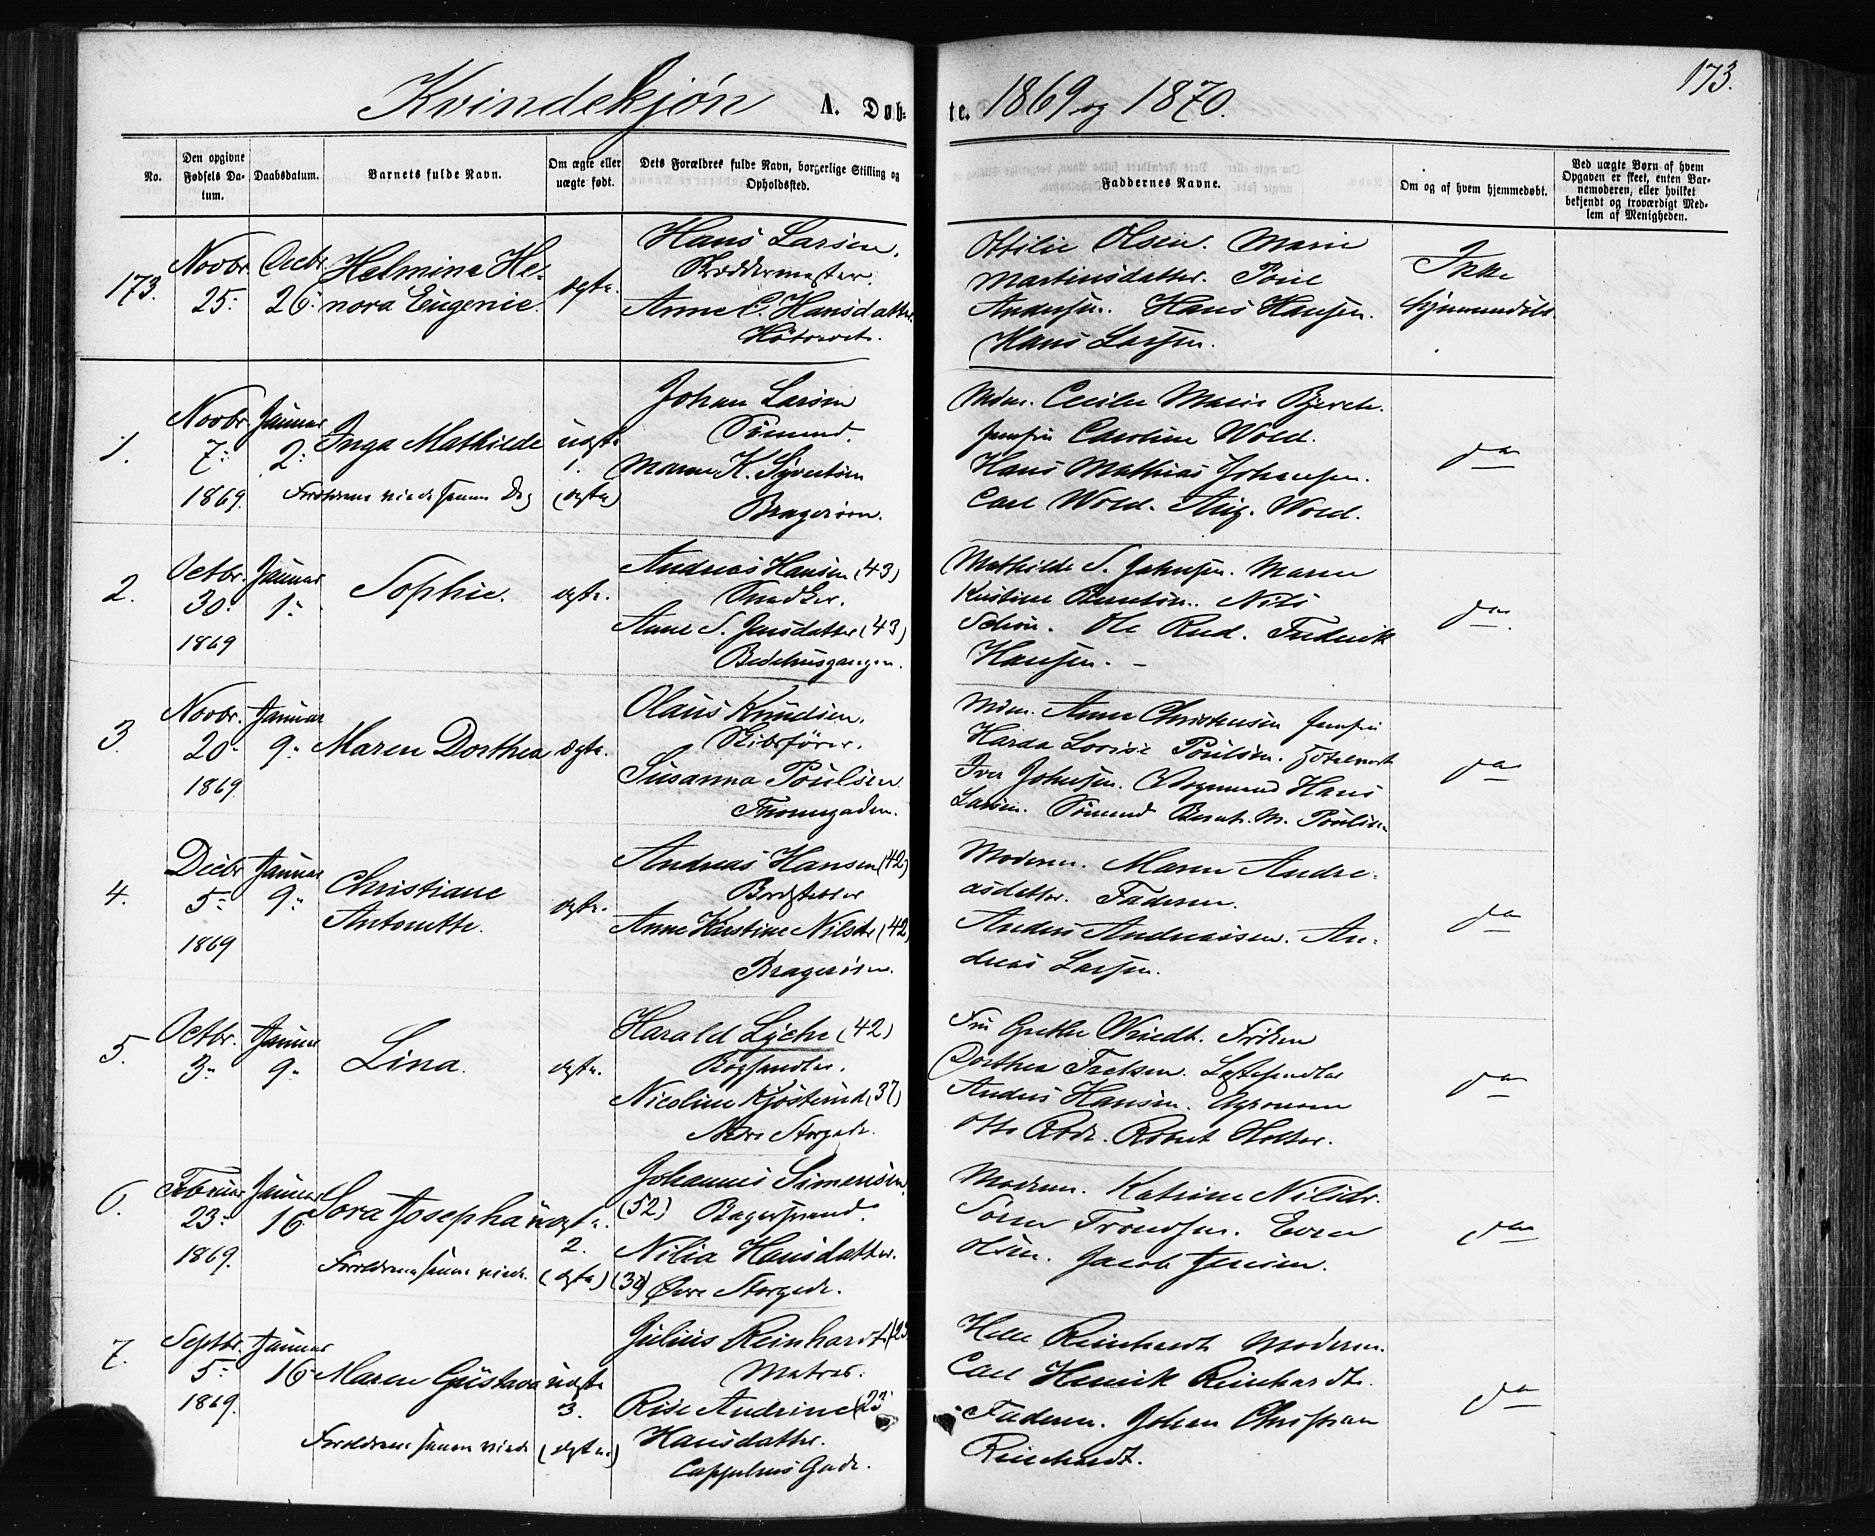 Kvindekjøn A. Døb- te. 1869 og 1870. 173.
No.
Den opgivne Fødsels Da-
tum.
Daabsdatum.
Barnets fulde Navn.
Om ægte eller
uægte født.
Dets Forældres fulde Navn, borgerlige Stilling og
Opholdssted.
Faddernes Navne.
Om og af hvem hjemmedøbt.
Ved uægte Børn af hvem
Opgaven er skeet, enten Bar-
nemoderen, eller hvilket
bekjendt og troværdigt Med-
lem af Menigheden.
173.
Novbr
25
Decbr
26
Helmine He-
nora Eugenie.
ægte.
Hans Larsen,
Skræddermester.
Anne C. Hansdatter
Høtorvet.
Ottilie Olsen. Marie
Martinsdatter. Poul
Andersen. Hans Hansen.
Hans Larsen.
Ikke
hjemmedøbt.
1.
Novbr
7
1869
Januar
2
Inga Mathilde
Forældrene viede samme Dag
uægte
1.
(ægte)
Johan Larsen
Sømand.
Maren K. Syvertsen
Bragerøen.
Mdm. Cecilie Marie Bjerch.
Jomfru Caroline Wold.
Hans Mathias Johansen.
Carl Wold. Aug. Wold.
do
2.
Octbr.
30
1869
Januar
1
Sophie.
ægte.
Andreas Hansen (43)
Snedker.
Anne S. Jensdatter (43)
Bedehusgangen.
Mathilde S. Johnsen. Maren
Kristine Berntsen. Nils
Schou. Ole Rud. Frederik
Hansen.
do
3.
Novbr.
20
1869
Januar
9
Maren Dorthea
ægte.
Olaus Knudsen,
Skibsfører.
Susanna Poulsen
Thomegaden.
Mdm. Anne Christensen Jomfru
Harda Lovise Poulsen.
Iver Johnsen. Vognmand Hans
Larsen. Sømand Bernt. M. Poulsen
do
4.
Decbr
5
1869
Januar
9
Christiane
Antonette.
ægte.
Andreas Hansen (42)
Bordstabler
Anne Kirstine Nilsdr (42)
Bragerøen.
Moderen. Maren Andre-
asdatter. Faderen.
Anders Andreasen. An-
dreas Larsen.
do
5.
Octbr.
3
Januar
9
Lina.
ægte.
Harald Lyche (42)
Boghandler.
Nicoline Kjøsterud (37)
Nedre Storgade.
Fru Grethe Windt. Frøken
Dorthea Fredsen.
Anders Hansen. Agronom
Otto Rode. Robert Holter.
do
6.
Februar
23
1869.
Januar
16
Sora Josepha
Forældrene senere viede.
uægte.
2.
(ægte)
Johannes Simensen
(52) Bagersvend.
Nilia Hansdatter.
Øvre Storgade.
Moderen. Katrine Nilsdr.
Søren Trondsen. Even
Olsen. Jacob Jensen.
do
7.
Septbr.
5
1869.
Januar
16
Maren Gustava
Forældrene senere viede
uægte
3.
(ægte)
Julius Reinhardt (25
Matros.
Rise Andrine (23
Hansdatter.
Cappelens Gade.
Helle Reinhardt Moderen.
Carl Henrik Reinhardt.
Faderen. Johan Christian
Reinhardt.
do